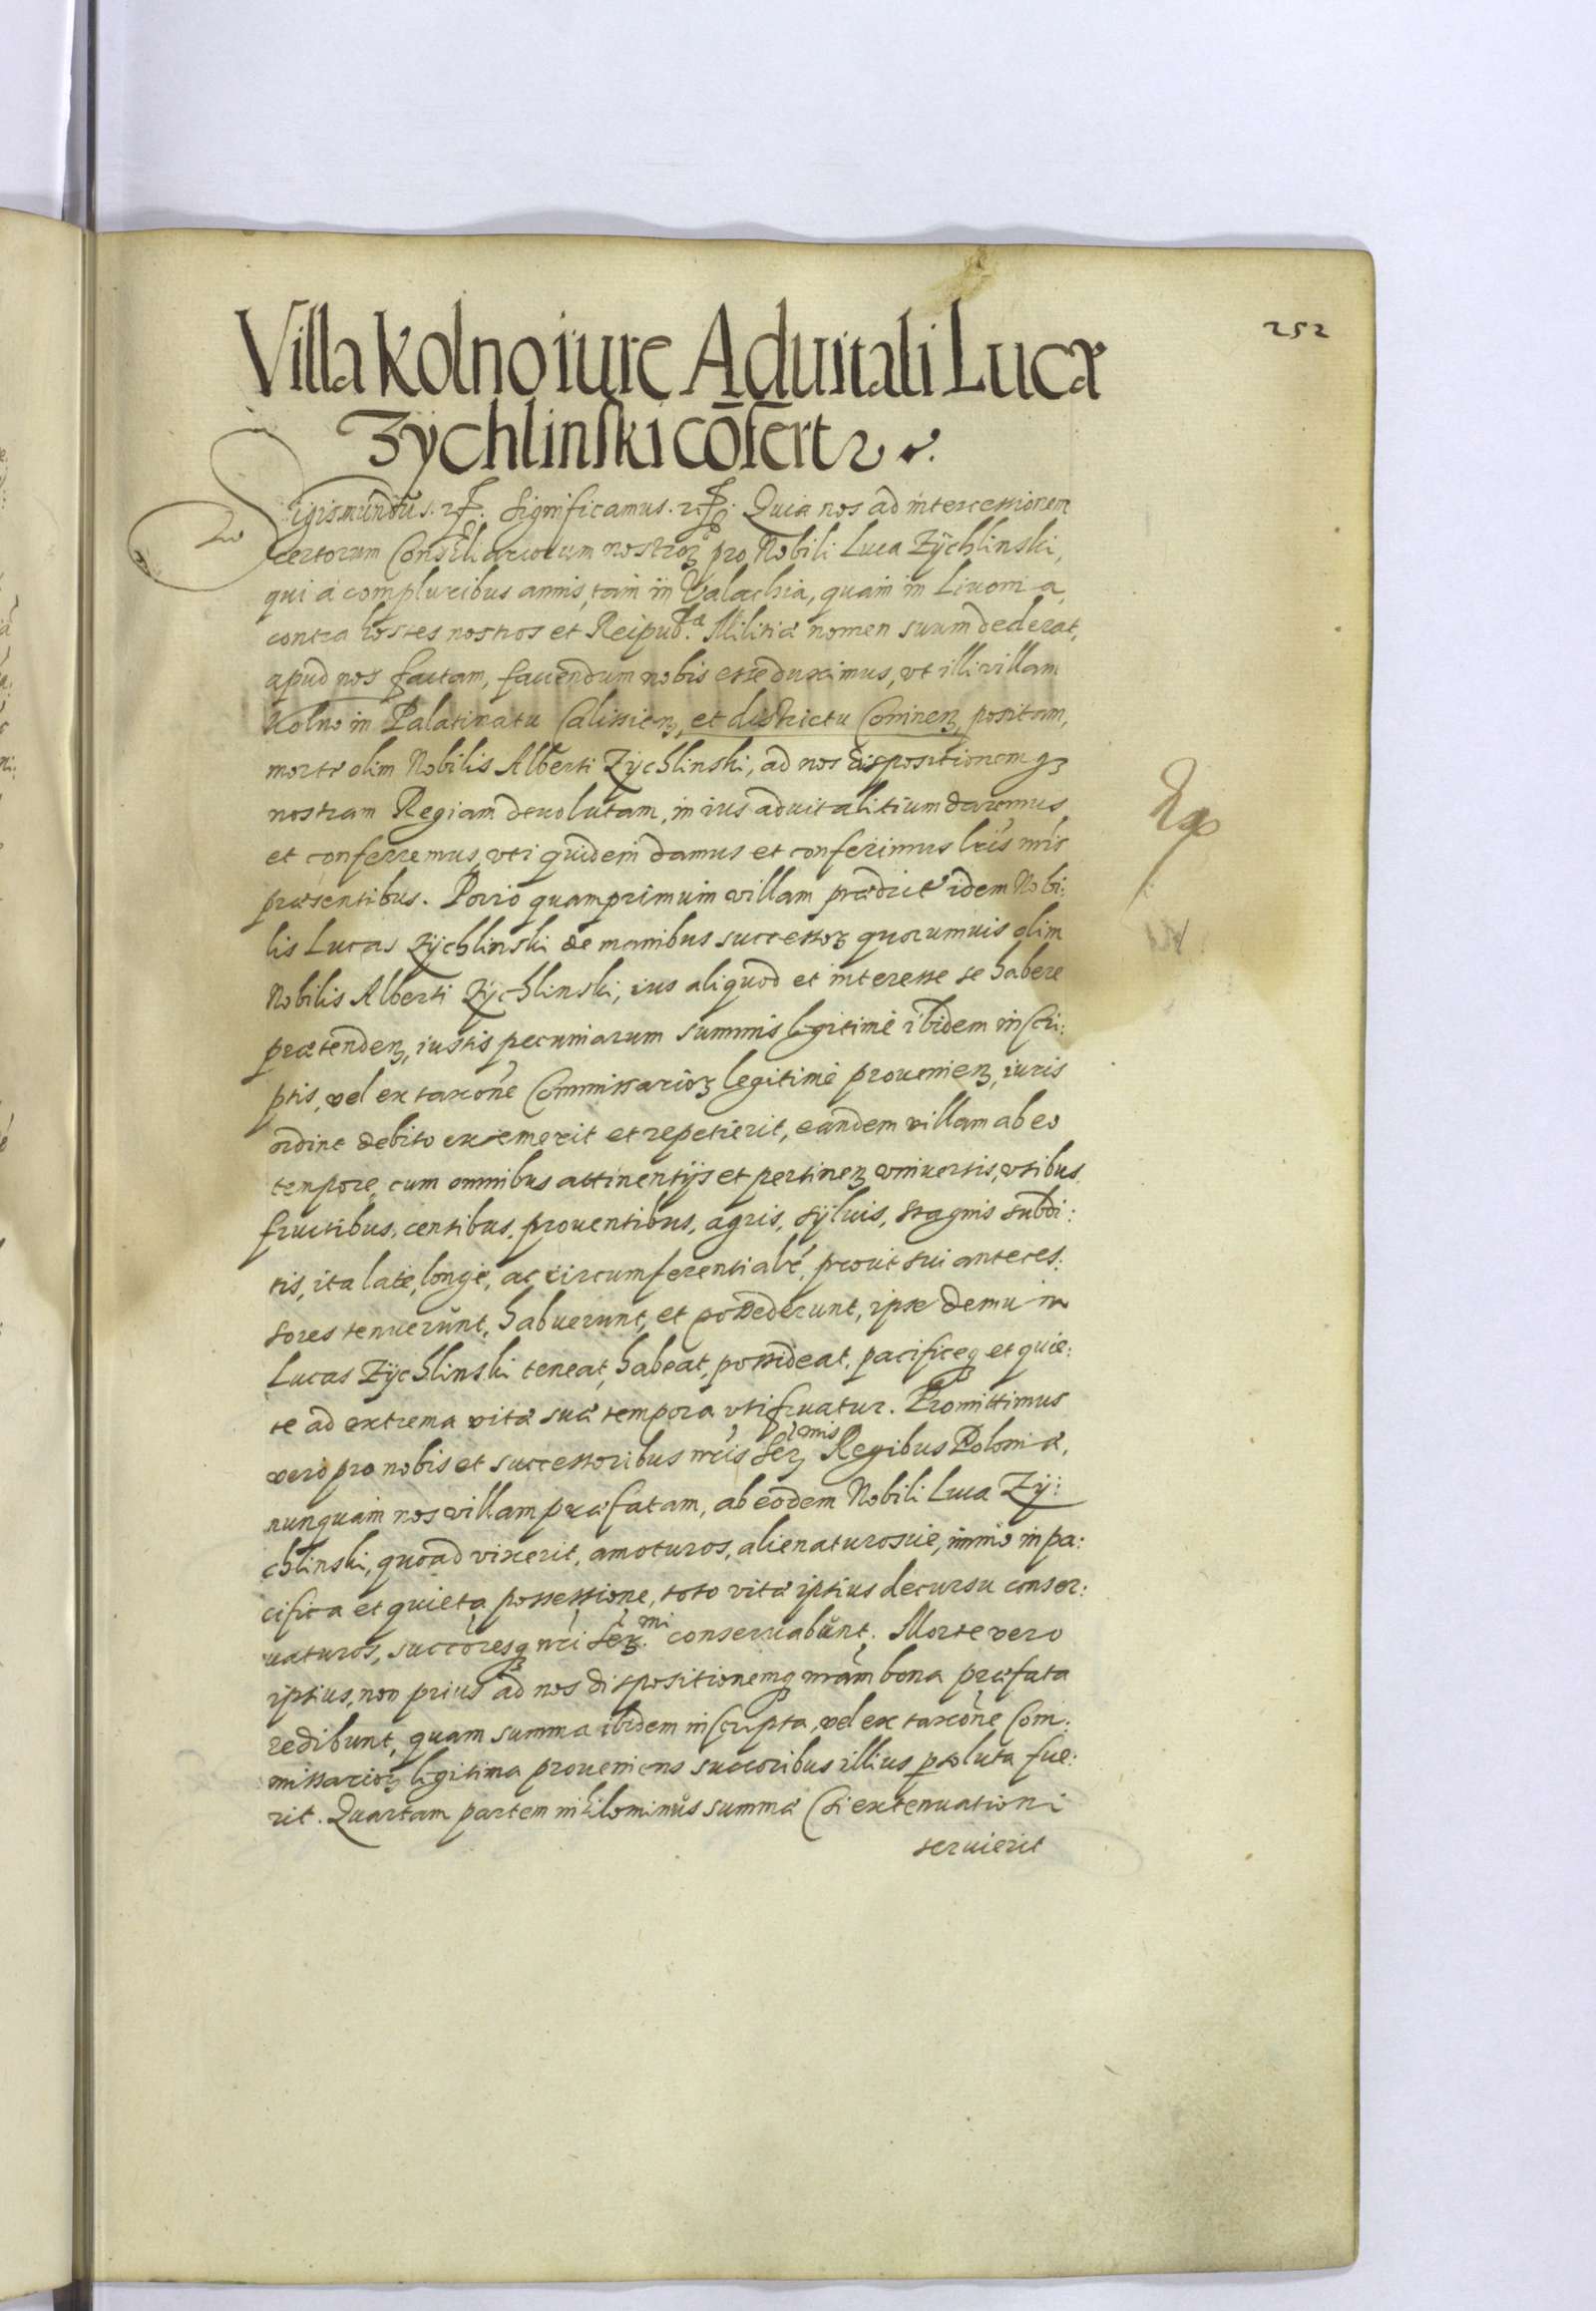 252
Villa Kolno iure Aduitali Lucæ
Zÿchlinski cōfert2.
Sigismundus. Significamus. Quia nos ad intercessionem
certorum Consiliariorum nostroꝝ pro Nobili Luca Zÿchlinski,
qui à compluribus annis, tam in Valachia, quàm in Liuonia,
contra hostes nostros et Reipub.ca Militiæ nomen suum dederat,
apud nos factam, fauendum nobis esse duximus, vt illi villam
Kolno in Palatinatu Calissieñ, et districtu Conineñ, positam,
morte olim Nobilis Alberti Zÿchlinski, ad nos dispositionemqꝫ
nostram Regiam deuolutam, in ius aduitalitium daremus,
et conferremus, vti quidem damus et conferimus lris nris
præsentibus. Porro quamprimum villam prædict' idem Nobi:
lis Lucas Zÿchlinski de manibus successoꝝ quorumuis olim
Nobilis Alberti Zÿchlinski, ius aliquod et interesse se habere
prætendeñ, iustis pecuniarum summis legitimè ibidem inscri:
ptis, vel ex taxone Commissarioꝝ legitimè prouenieñ, iuris
ordine debito exemerit et repetierit, eandem villam ab eo
tempore, cum omnibus attinentijs et pertineñ vniuersis, vsibus
fructibus, censibus, prouentibus, agris, sÿluis, stagnis subdi:
tis, ita latè, longè, ac circumferentialr', prout sui anteces:
sores tenuerunt, habuerunt, et possederunt, ipse demum
Lucas Zÿchlinski teneat, habeat, possideat, pacificeqꝫ et quie:
te ad extrema vitæ suæ tempora vtifruatur. Promittimus
vero pro nobis et successoribus nris Sermis Regibus Poloniæ,
nunquam nos villam præfatam, ab eodem Nobili Luca Zÿ:
chlinski, quoad vixerit, amoturos, alienaturosue, immo in pa:
cifica et quieta possessione, toto vitæ ipsius decursu conser:
uaturos, succoresqꝫ nri Ser.mi conseruabunt. Morte vero
ipsius, non prius ad nos dispositionemqꝫ nram bona præfata
redibunt, quam summa ibidem inscripta, vel ex taxone Com:
missarioꝝ legitima proueniens succoribus illius psoluta fue:
rit. Quartam partem nihilominus summæ (si extenuationi
seruierit